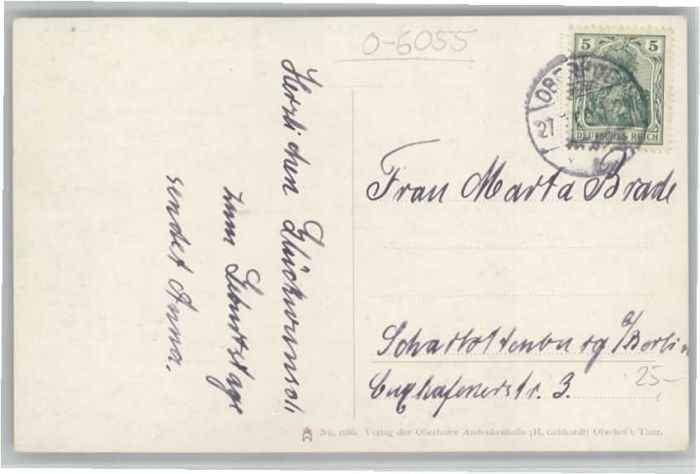 O-6055
Herzlichen Glückwunsch
zum Geburtstage
sendet Anna.
5 5
DEUTSCHES REICH
27
Frau Marta Brade
Scharlottenburg b/Berlin
Cuxhafenerstr. 3.
25-
No. 1686. Verlag der Oberhofer Andenkenhalle (H. Gebhardt) Oberhof i. Thür.